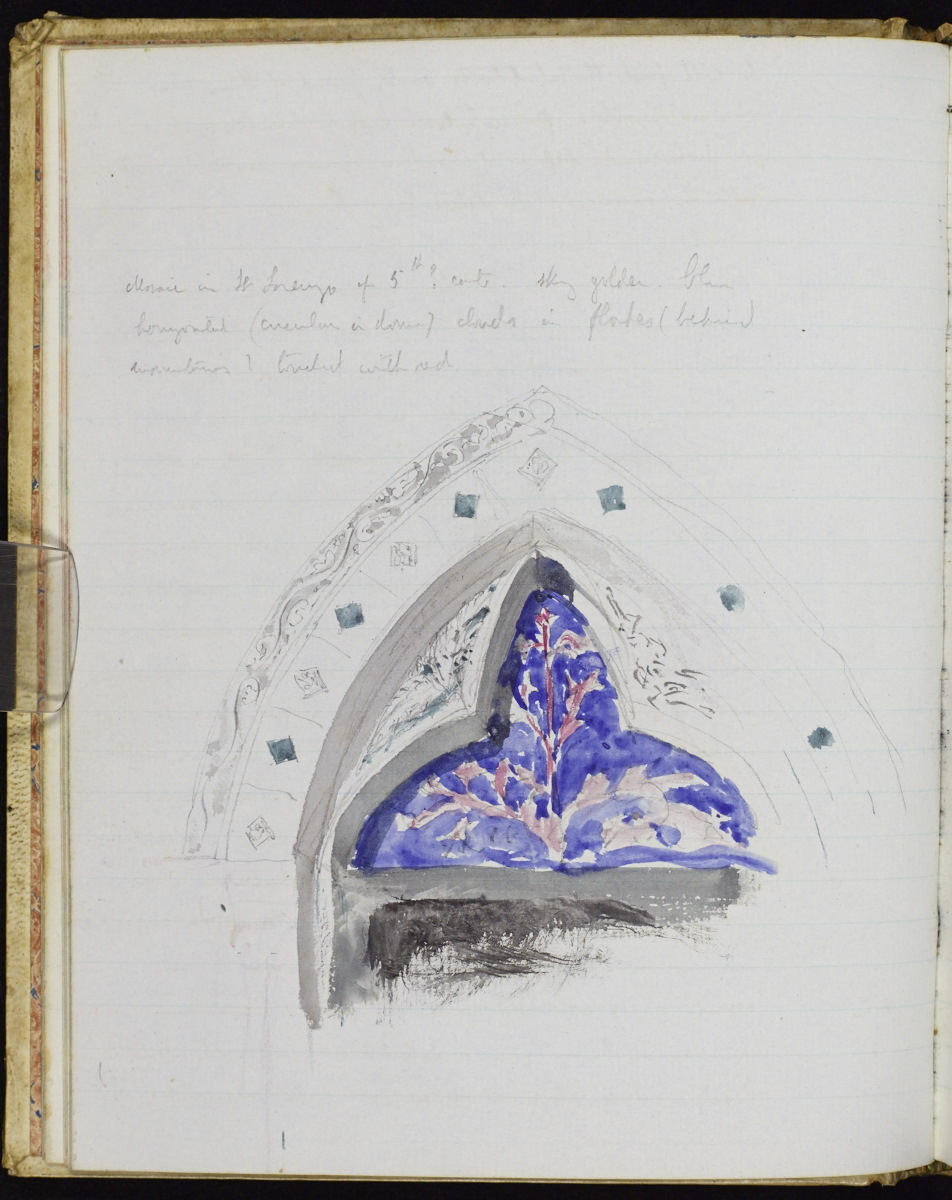 Mosaic in St Lorenzo of 5th? cent. sky golden. blue
horizontal (circular in dome) clouds in flakes (behind
mountains) touched with red